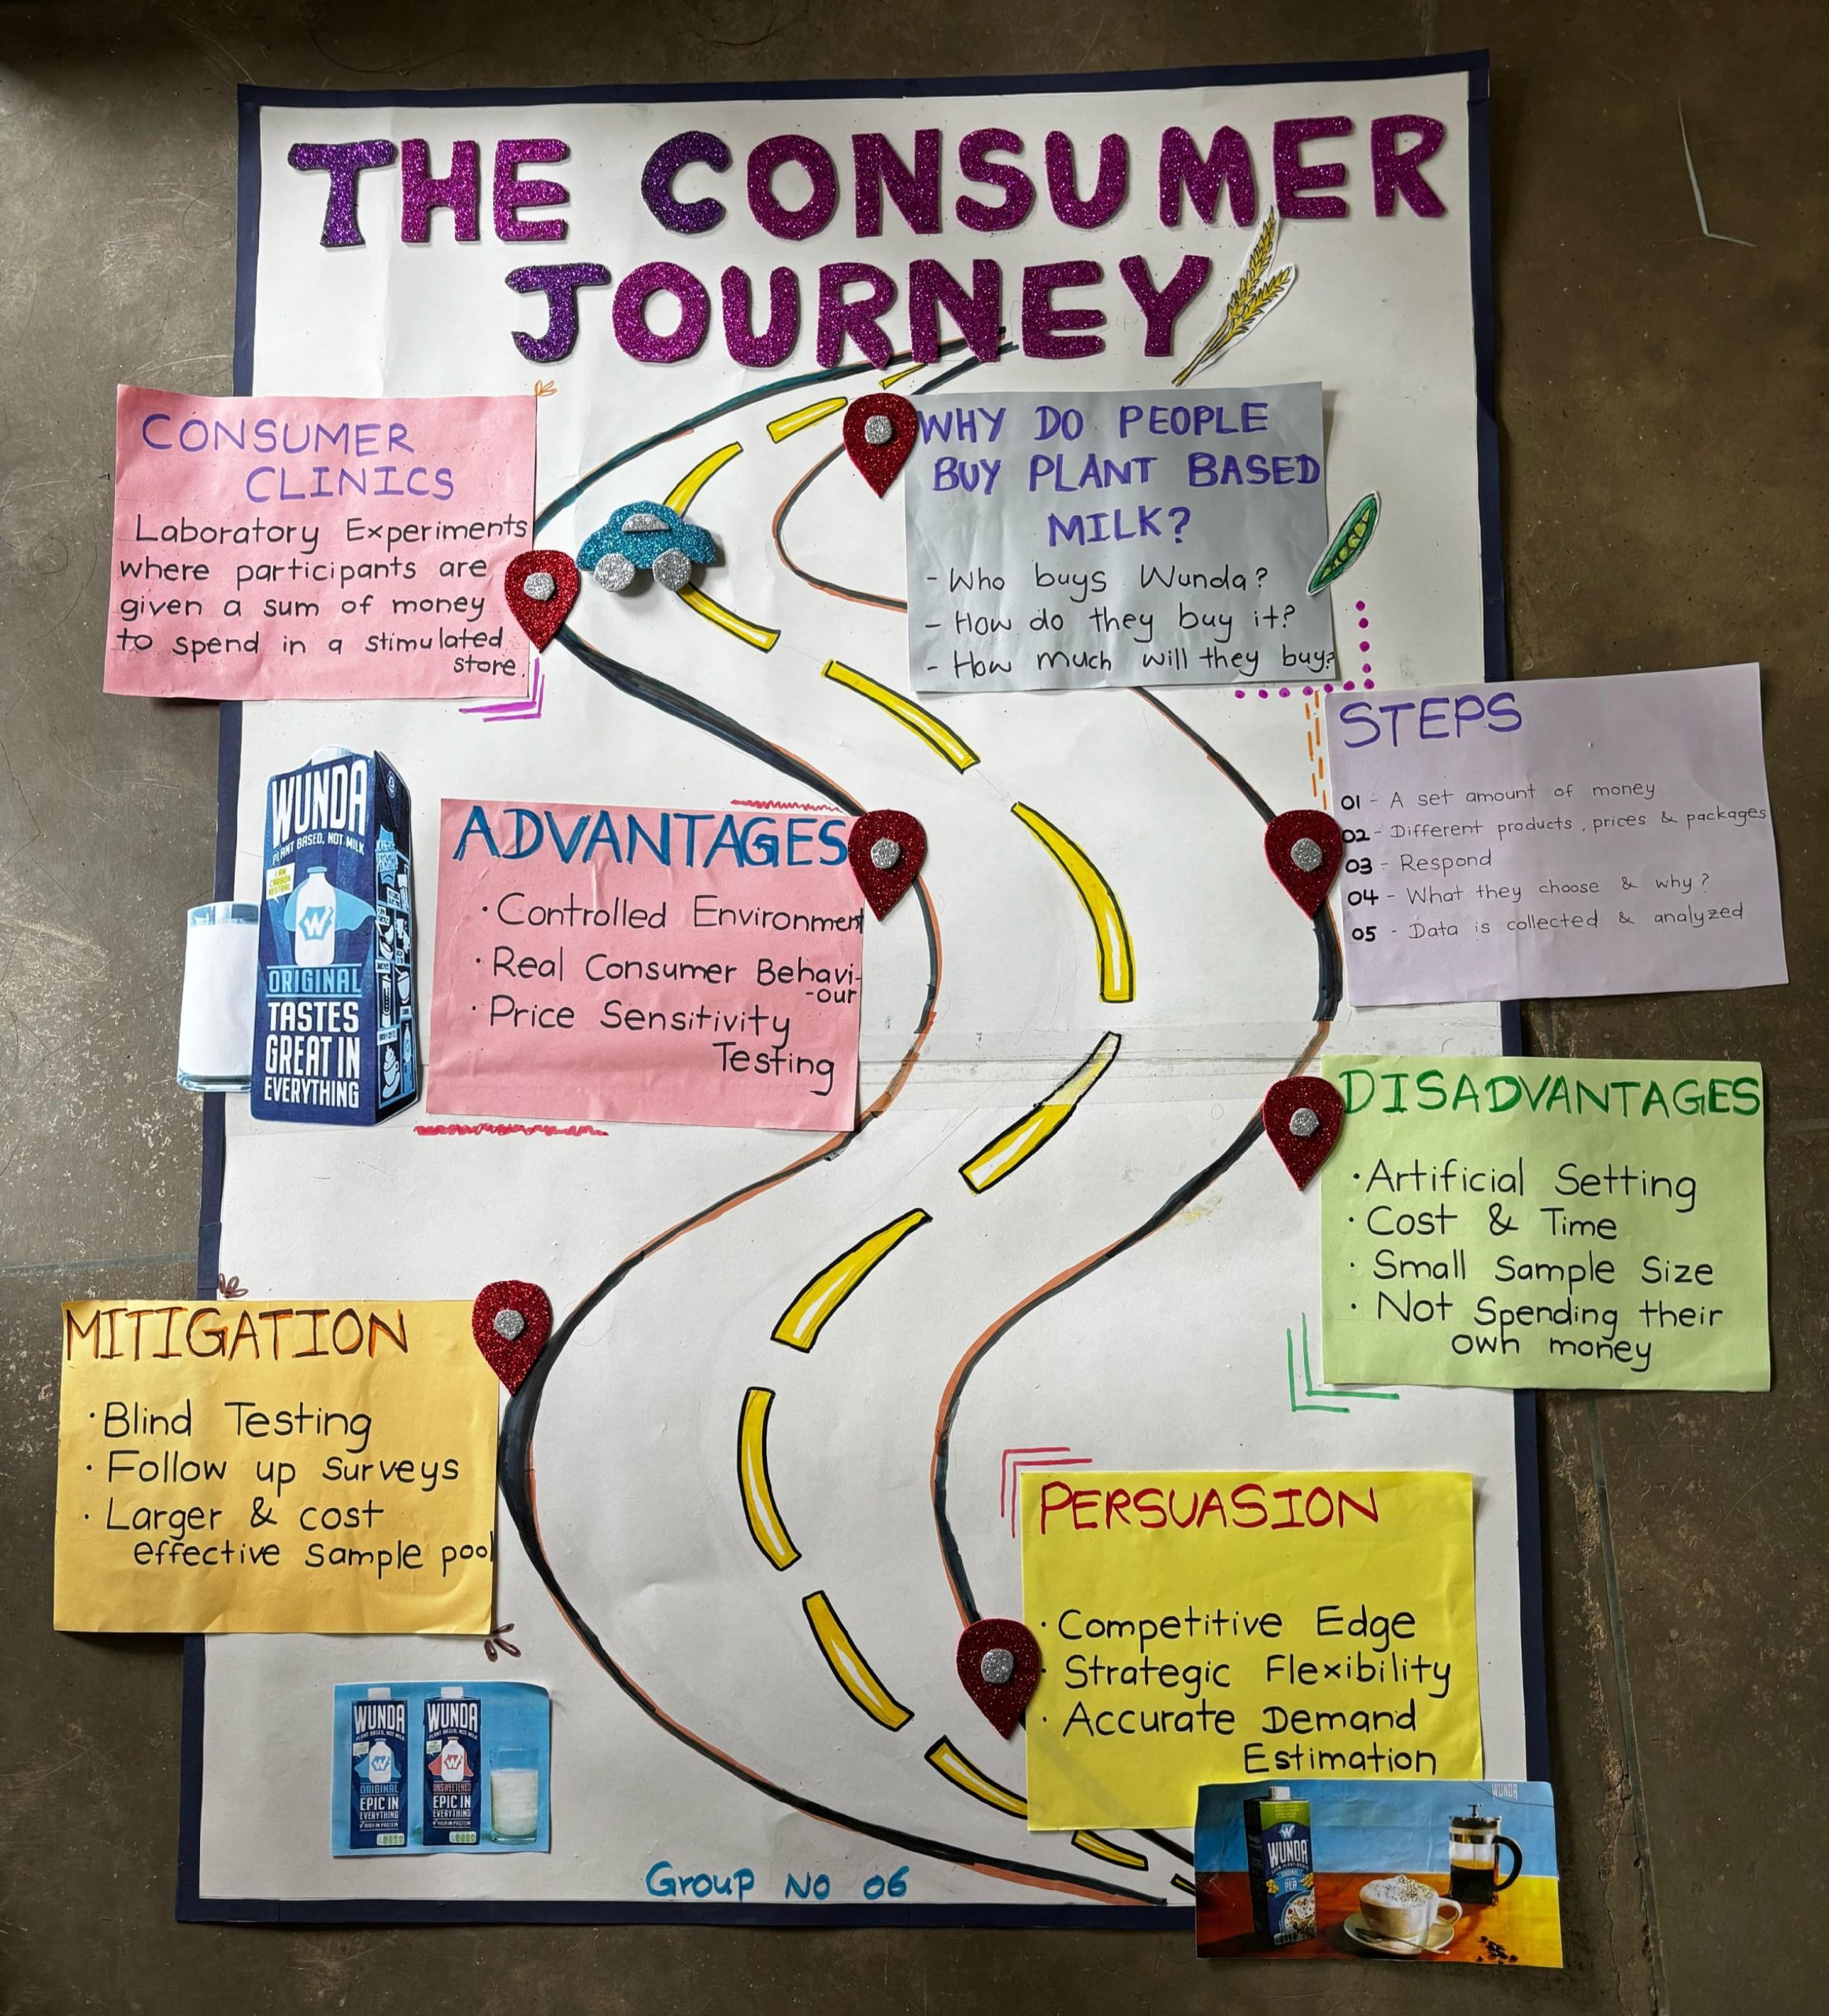 THE CONSUMER
JOURNEY
CONSUMER
CLINICS
Laboratory Experiments
where participants are
given a sum of money
to spend in a stimulated
store.
WHY DO PEOPLE
BUY PLANT BASED
MILK?
- Who buys Wunda?
- How do they buy it?
- How much will they buy?
STEPS
01 - A set amount of money
02 - Different products, prices & packages
03 - Respond
04 - What they choose & why?
05 - Data is collected & analyzed
WUNDA
PLANT BASED, NOT MILK
I AM
CARBON
NEUTRAL
W
ORIGINAL
TASTES
GREAT IN
EVERYTHING
ADVANTAGES
· Controlled Environment
· Real Consumer Behavi-
-our
· Price Sensitivity
Testing
DISADVANTAGES
· Artificial Setting
· Cost & Time
· Small Sample Size
· Not Spending their
own money
MITIGATION
· Blind Testing
· Follow up Surveys
· Larger & cost
effective sample pool
PERSUASION
· Competitive Edge
· Strategic Flexibility
· Accurate Demand
Estimation
WUNDA
PLANT BASED, NOT MILK
W
ORIGINAL
EPIC IN
EVERYTHING
HIGH IN PROTEIN
WUNDA
PLANT BASED, NOT MILK
W
UNSWEETENED
EPIC IN
EVERYTHING
HIGH IN PROTEIN
WUNDA
W
WUNDA
ORIGINAL
Group No 06